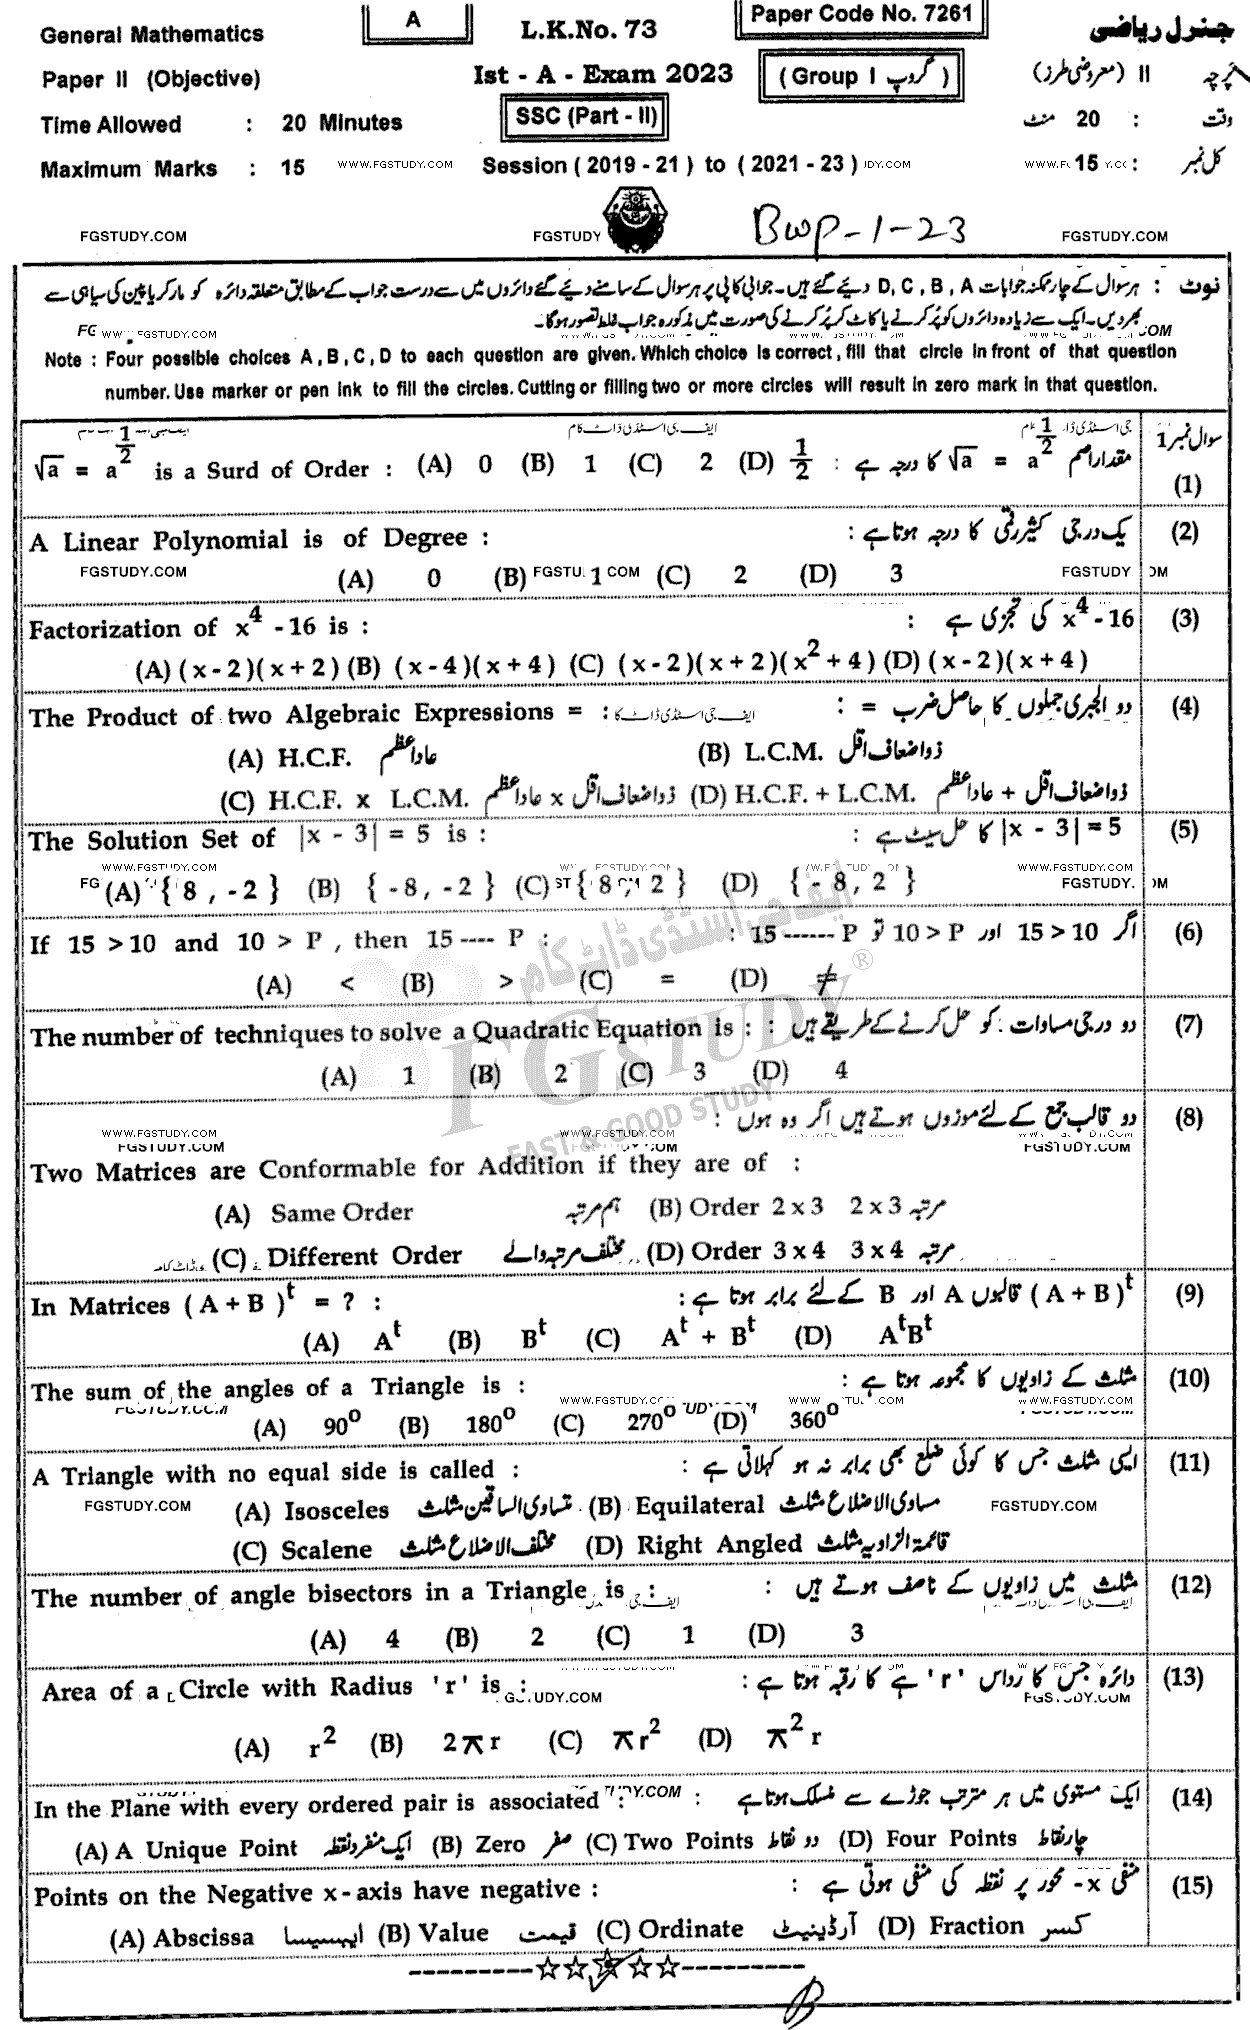 General Mathematics
A
L.K.No. 73
Paper Code No. 7261
جنرل ریاضی
Paper II (Objective)
Ist - A - Exam 2023
(Group I گروپ)
پرچہ II (معروضی طرز)
Time Allowed : 20 Minutes
SSC (Part - II)
وقت : 20 منٹ
Maximum Marks : 15
WWW.FGSTUDY.COM
Session (2019 - 21) to (2021 - 23)
کل نمبر : 15
FGSTUDY.COM
FGSTUDY
BWP-1-23
FGSTUDY.COM
نوٹ : ہر سوال کے چار ممکنہ جوابات D, C, B, A دیئے گئے ہیں۔ جوابی کاپی پر ہر سوال کے سامنے دیئے گئے دائروں میں سے درست جواب کے مطابق متعلقہ دائرہ کو مارکر یا پین کی سیاہی سے
بھر دیں۔ ایک سے زیادہ دائروں کو پُر کرنے یا کاٹ کر پُر کرنے کی صورت میں مذکورہ جواب غلط تصور ہوگا۔
Note : Four possible choices A, B, C, D to each question are given. Which choice is correct, fill that circle in front of that question
number. Use marker or pen ink to fill the circles. Cutting or filling two or more circles will result in zero mark in that question.
سوال نمبر 1
√a = a^(1/2) is a Surd of Order : (A) 0 (B) 1 (C) 2 (D) 1/2 : مقدار اصم √a = a^(1/2) کا درجہ ہے (1)
A Linear Polynomial is of Degree : یک درجی کثیر رقمی کا درجہ ہوتا ہے : (2)
FGSTUDY.COM (A) 0 (B) 1 (C) 2 (D) 3 FGSTUDY
Factorization of x⁴ - 16 is : x⁴ - 16 کی تجزی ہے : (3)
(A) (x - 2)(x + 2) (B) (x - 4)(x + 4) (C) (x - 2)(x + 2)(x² + 4) (D) (x - 2)(x + 4)
The Product of two Algebraic Expressions = : دو الجبری جملوں کا حاصل ضرب = : (4)
(A) H.C.F. عاد اعظم (B) L.C.M. ذواضعاف اقل
(C) H.C.F. x L.C.M. ذواضعاف اقل x عاد اعظم (D) H.C.F. + L.C.M. ذواضعاف اقل + عاد اعظم
The Solution Set of |x - 3| = 5 is : |x - 3| = 5 کا حل سیٹ ہے : (5)
WWW.FGSTUDY.COM
(A) { 8 , -2 } (B) { -8 , -2 } (C) { 8 , 2 } (D) { -8 , 2 } FGSTUDY.
If 15 > 10 and 10 > P , then 15 ---- P : اگر 15 > 10 اور 10 > P تو 15 ------ P : (6)
(A) < (B) > (C) = (D) ≠
ایف جی اسٹڈی ڈاٹ کام
FGSTUDY®
FAST & GOOD STUDY
The number of techniques to solve a Quadratic Equation is : دو درجی مساوات کو حل کرنے کے طریقے ہیں : (7)
(A) 1 (B) 2 (C) 3 (D) 4
دو قالب جمع کے لئے موزوں ہوتے ہیں اگر وہ ہوں : (8)
WWW.FGSTUDY.COM
FGSTUDY.COM
Two Matrices are Conformable for Addition if they are of :
(A) Same Order ہم مرتبہ (B) Order 2 x 3 مرتبہ 2 x 3
(C) Different Order مختلف مرتبہ والے (D) Order 3 x 4 مرتبہ 3 x 4
In Matrices (A + B)ᵗ = ? : (A + B)ᵗ قالبوں A اور B کے لئے برابر ہوتا ہے : (9)
(A) Aᵗ (B) Bᵗ (C) Aᵗ + Bᵗ (D) AᵗBᵗ
The sum of the angles of a Triangle is : مثلث کے زاویوں کا مجموعہ ہوتا ہے : (10)
(A) 90° (B) 180° (C) 270° (D) 360°
A Triangle with no equal side is called : ایسی مثلث جس کا کوئی ضلع بھی برابر نہ ہو کہلاتی ہے : (11)
FGSTUDY.COM (A) Isosceles متساوی الساقین مثلث (B) Equilateral مساوی الاضلاع مثلث FGSTUDY.COM
(C) Scalene مختلف الاضلاع مثلث (D) Right Angled قائمۃ الزاویہ مثلث
The number of angle bisectors in a Triangle is : مثلث میں زاویوں کے ناصف ہوتے ہیں : (12)
(A) 4 (B) 2 (C) 1 (D) 3
Area of a Circle with Radius 'r' is : دائرہ جس کا رداس 'r' ہے کا رقبہ ہوتا ہے : (13)
(A) r² (B) 2πr (C) πr² (D) π²r
In the Plane with every ordered pair is associated : ایک مستوی میں ہر مترتب جوڑے سے منسلک ہوتا ہے : (14)
(A) A Unique Point ایک منفرد نقطہ (B) Zero صفر (C) Two Points دو نقاط (D) Four Points چار نقاط
Points on the Negative x-axis have negative : منفی x- محور پر نقطہ کی منفی ہوتی ہے : (15)
(A) Abscissa ایبسیسا (B) Value قیمت (C) Ordinate آرڈینیٹ (D) Fraction کسر